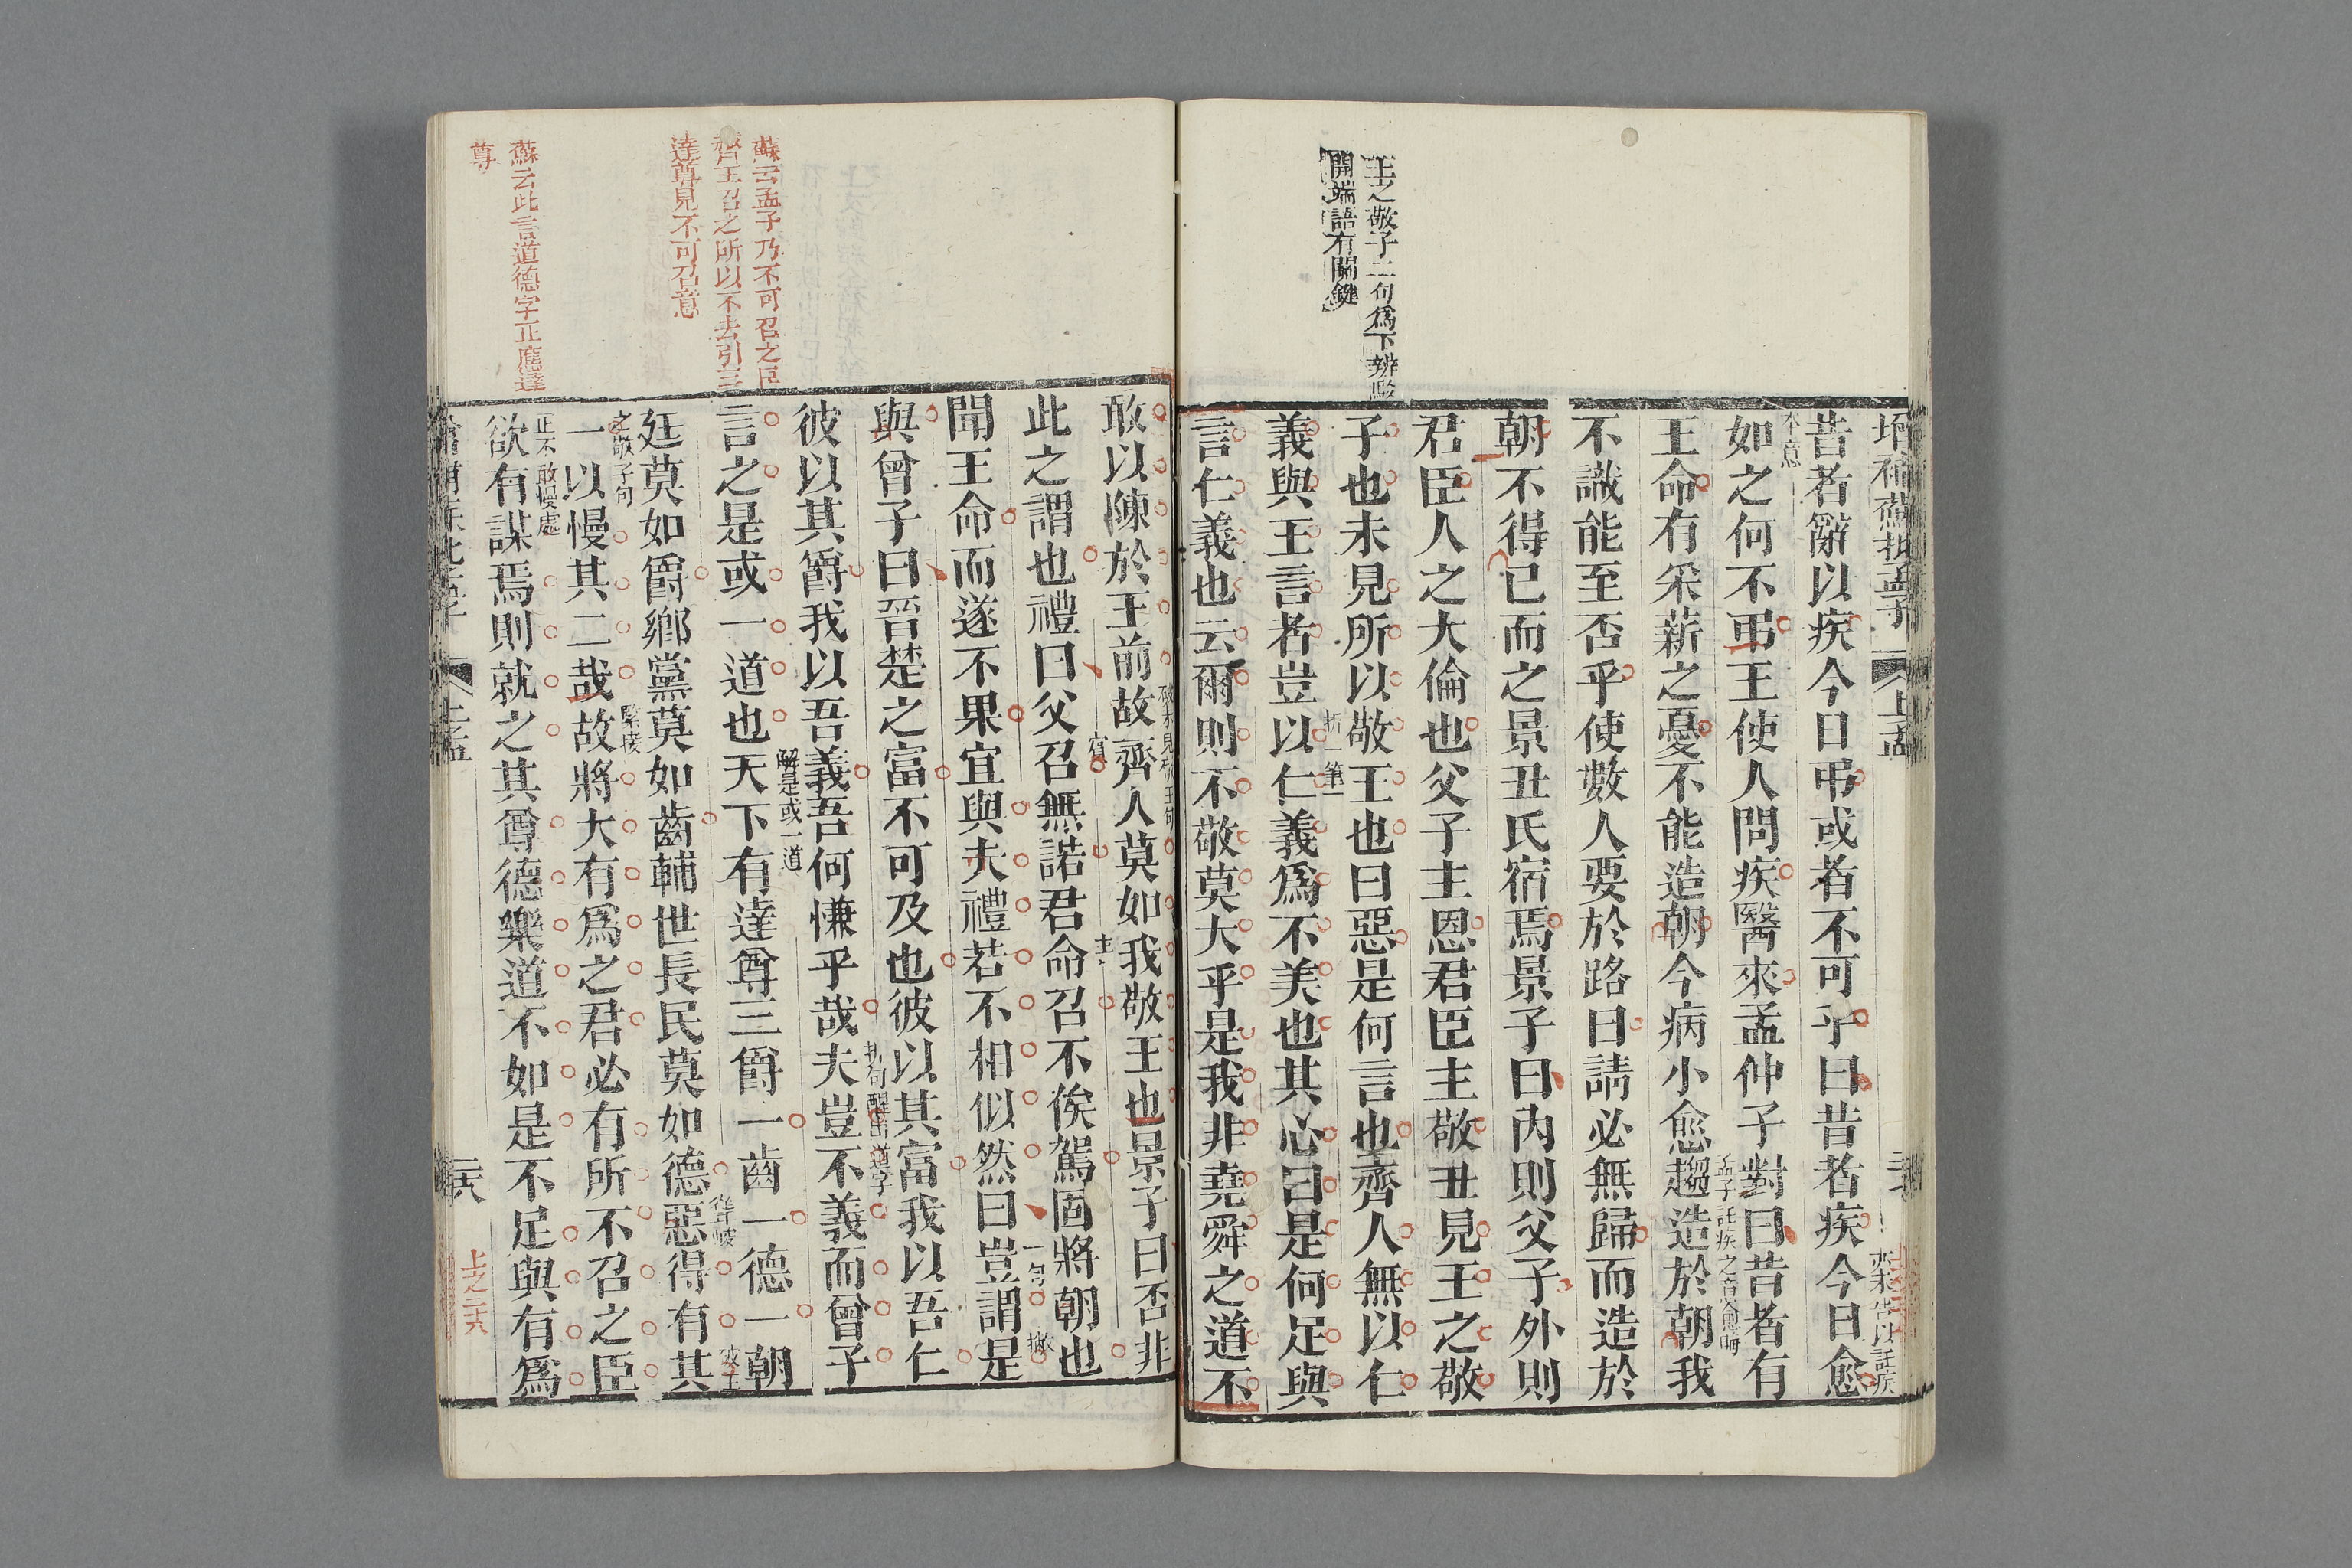 增補蘇批孟子
上孟
王之敬子二句爲下辨駁
開端語有關鍵
昔者辭以疾今日弔或者不可乎曰昔者疾今日愈
亦未嘗以託疾
本意
如之何不弔王使人問疾醫來孟仲子對曰昔者有
王命有采薪之憂不能造朝今病小愈趨造於朝我
孟子託疾之意愈晦
不識能至否乎使數人要於路曰請必無歸而造於
朝不得已而之景丑氏宿焉景子曰內則父子外則
君臣人之大倫也父子主恩君臣主敬丑見王之敬
子也未見所以敬王也曰惡是何言也齊人無以仁
義與王言者豈以仁義爲不美也其心曰是何足與
折一筆
言仁義也云爾則不敬莫大乎是我非堯舜之道不
敢以陳於王前故齊人莫如我敬王也景子曰否非
賓
主
此之謂也禮曰父召無諾君命召不俟駕固將朝也
聞王命而遂不果宜與夫禮若不相似然曰豈謂是
一句
撇
與曾子曰晉楚之富不可及也彼以其富我以吾仁
彼以其爵我以吾義吾何慊乎哉夫豈不義而曾子
折句醒出道字
言之是或一道也天下有達尊三爵一齒一德一朝
解是或一道
廷莫如爵鄉黨莫如齒輔世長民莫如德惡得有其
一以慢其二哉故將大有爲之君必有所不召之臣
之敬子句
緊接
欲有謀焉則就之其尊德樂道不如是不足與有爲
正不敢慢處
蘇云孟子乃不可召之臣
齊王召之所以不去引三
達尊見不可召意
蘇云此言道德字正應達
尊
上孟
二六
上之二六